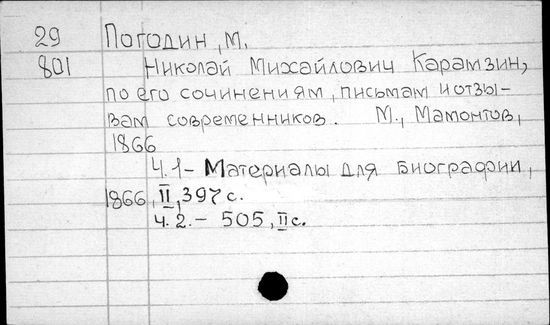 29 Погодин, М.
801 Николай Михайлович Карамзин,
по его сочинениям, письмам и отзы-
вам современников. М., Мамонтов,
1866
Ч.1- Материалы для биографии,
1866, II, 397 с.
Ч.2.- 505, II с.